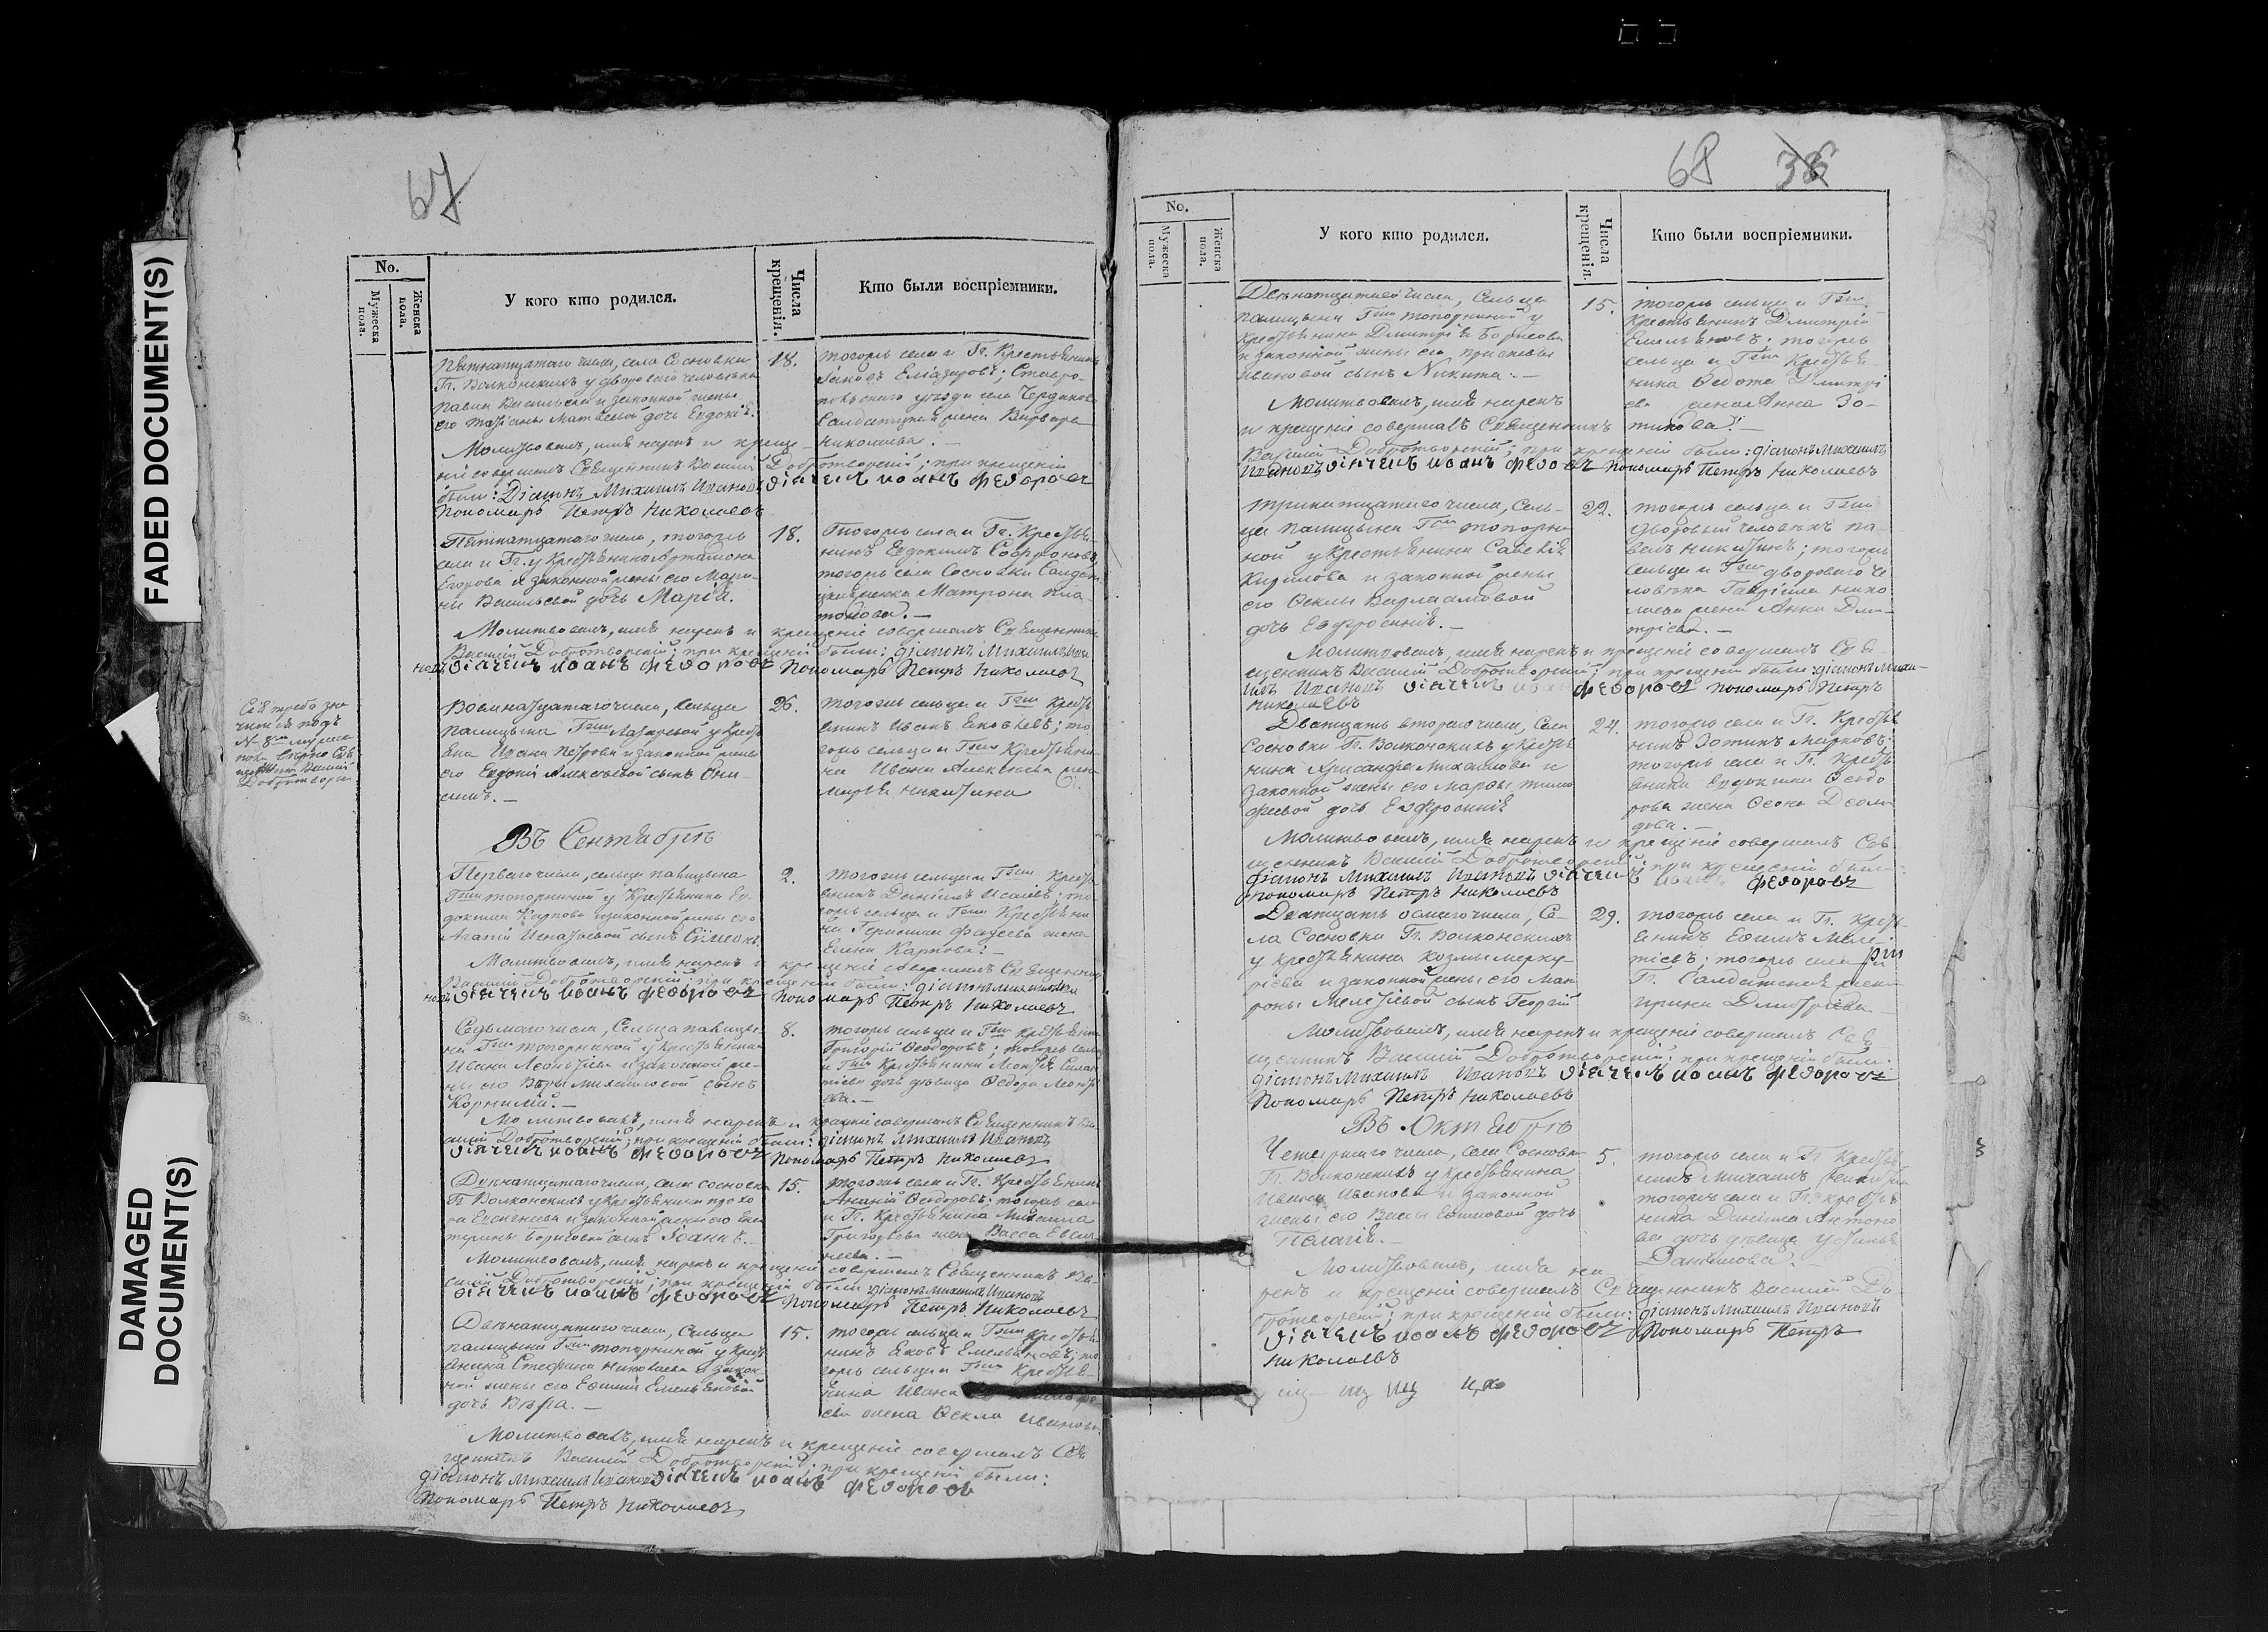 FADED DOCUMENT(S)
DAMAGED
DOCUMENT(S)
67
No.
Мужеска пола.
Женска пола.
У кого кто родился.
Числа крещенія.
Кто были воспріемники.
Пятнатцатаго числа, села Сосновки
Гг. Волконскихъ у двороваго человѣка
Павла Васильева и законной жены
его Матвѣевой дочь Евдокія.
18.
тогожъ села и Гг. Крестьянинъ
Іаковъ Еліазаровъ; Ставро-
польскаго уѣзда села
Салдатская жена Варвара
Николаева. —
Молитвовалъ, имя нарекъ и креще-
ніе совершалъ Священникъ Василій Добротворскій; при крещеніи
были: Діаконъ Михаилъ Ивановъ дьячекъ Иоанъ Федоровъ
Пономарь Петръ Николаевъ
Пятнатцатаго числа, тогожъ
села и Гг. у Крестьянина
Егорова и законной жены его Мари-
ны Васильевой дочь Марія.
18.
Тогожъ села и Гг. Крестья-
нинъ Евдокимъ Софроновъ;
тогожъ села Сосновки Салдат-
Матрона Пла-
тонова. —
Молитвовалъ, имя нарекъ и крещеніе совершалъ Священникъ
Василій Добротворскій; при крещеніи были: діаконъ Михаилъ Ива
новъ дьячекъ Иоанъ Федоровъ Пономарь Петръ Николаевъ
числа, сельца
Палицына Гжи Лазаревой у Кресть
яна Ивана Петрова и законной жены
его Евдокіи Алексѣевой сынъ Они-
симъ. —
26.
тогожъ сельца и Гжи Кресть
янинъ Иванъ Яковлевъ; то
гожъ сельца и Гжи Крестьяни-
на Ивана Алексѣева жена
Марья Никитина
Въ Сентябрѣ
Перваго числа, сельца Палицына
Гжи Топорниной у Крестьянина Ев-
докима Карпова и законной жены его
Агапіи Игнатьевой сынъ Симеонъ.
2.
тогожъ сельца и Гжи Кресть
янинъ Даніилъ Исаевъ; то
гожъ сельца и Гжи Крестьяни
на Герасима Фадеева жена
Елена Карпова. —
Молитвовалъ, имя нарекъ и крещеніе совершалъ Священникъ
Василій Добротворскій; при крещеніи были: діаконъ Михаилъ Ива
новъ дьячекъ Иоанъ Федоровъ Пономарь Петръ Николаевъ
Седьмаго числа, Сельца Палицы-
на Гжи Топорниной у Крестьянина
Ивана Леонтіева и законной же-
ны его Вѣры Михайловой сынъ
Корнилій. —
8.
тогожъ сельца и Гжи Крестьянинъ
Григорій Феодоровъ; тогожъ сельца
и Гжи Крестьянина Леонтія
дочь дѣвица Феодора Леонть
ева. —
Молитвовалъ, имя нарекъ и крещеніе совершалъ Священникъ Ва-
силій Добротворскій; при крещеніи были: діаконъ Михаилъ Ивановъ
дьячекъ Иоанъ Федоровъ Пономарь Петръ Николаевъ
числа, села Сосновки
Гг. Волконскихъ у Крестьянина Прохо
ра и законной жены его Ека
терины Борисовой сынъ Іоаннъ.
15.
тогожъ села и Гг. Крестьянинъ
Ананій Феодоровъ; тогожъ села
и Гг. Крестьянина Михаила
Григорьева жена Васса
Молитвовалъ, имя нарекъ и крещеніе совершалъ Священникъ Ва-
силій Добротворскій; при крещеніи были діаконъ Михаилъ Ивановъ
дьячекъ Иоанъ Федоровъ Пономарь Петръ Николаевъ
числа, Сельца
Палицына Гжи Топорниной у Кресть
янина Стефана Николаева и закон-
ной жены его Евфиміи Емельяновой
дочь Вѣра. —
15.
тогожъ сельца и Гжи Крестья
нинъ Яковъ Емельяновъ; то
гожъ сельца и Гжи Крестья-
нина Ивана
ева жена Фекла Иванова
Молитвовалъ, имя нарекъ и крещеніе совершалъ Свя
щенникъ Василій Добротворскій; при крещеніи были:
діаконъ Михаилъ Ивановъ дьячекъ Иоанъ Федоровъ
Пономарь Петръ Николаевъ
68 36
No.
Мужеска пола.
Женска пола.
У кого кто родился.
Числа крещенія.
Кто были воспріемники.
числа, Сельца
Палицына Гжи Топорниной у
Крестьянина Димитрія Борисова
и законной жены его
Ивановой сынъ Никита. —
15.
тогожъ сельца и Гжи
Крестьянинъ Димитрій
Емельяновъ; тогожъ
сельца и Гжи Крестья-
нина Федота Димитрі
ева жена Анна Зо-
тикова. —
Молитвовалъ, имя нарекъ
и крещеніе совершалъ Священникъ
Василій Добротворскій; при крещеніи были: діаконъ Михаилъ
Ивановъ дьячекъ Иоанъ Федоровъ Пономарь Петръ Николаевъ
числа, Сель-
ца Палицына Гжи Топорни-
ной у Крестьянина Савелія
Кирилова и законной жены
его Феклы Варлаамовой
дочь Евфросинія. —
22.
тогожъ сельца и Гжи
дворовый человѣкъ Па-
велъ Никитинъ; тогожъ
сельца и Гжи двороваго че
ловѣка Гавріила Нико
лаева жена Анна Дми-
тріева. —
Молитвовалъ, имя нарекъ и крещеніе совершалъ Свя-
щенникъ Василій Добротворскій; при крещеніи были: діаконъ Миха-
илъ Ивановъ дьячекъ Иоанъ Федоровъ Пономарь Петръ
Николаевъ
Дватцать втораго числа, Села
Сосновки Гг. Волконскихъ у Кресть
янина Хрисанфа Михайлова и
законной жены его Марфы Тимо
феевой дочь Евфросинія
24.
тогожъ села и Гг. Крестья
нинъ Зотикъ Марковъ;
тогожъ села и Гг. Кресть
янина Евдокима Феодо
рова жена
Молитвовалъ, имя нарекъ и крещеніе совершалъ Свя
щенникъ Василій Добротворскій; при крещеніи были
діаконъ Михаилъ Ивановъ дьячекъ Иоанъ Федоровъ
Пономарь Петръ Николаевъ
Дватцать осмаго числа, Се-
ла Сосновки Гг. Волконскихъ
у крестьянина Козмы Мерку-
ріева и законной жены его Мат
роны Мелетіевой сынъ Георгій
29.
тогожъ села и Гг. Кресть-
янинъ Ефимъ Меле-
тіевъ; тогожъ села и
Гг. Салдатская жена
Ирина Димитріева
Молитвовалъ, имя нарекъ и крещеніе совершалъ Свя
щенникъ Василій Добротворскій; при крещеніи были:
діаконъ Михаилъ Ивановъ дьячекъ Иоанъ Федоровъ
Пономарь Петръ Николаевъ
Въ Октябрѣ
Четвертаго числа, села Сосновки
Гг. Волконскихъ у крестьянина
Ивана Иванова и законной
жены его Вассы дочь
Пелагія. —
5.
тогожъ села и Гг. Крестья
нинъ Михаилъ
тогожъ села и Гг. крестья
нина Даніила Антоно
ва дочь дѣвица Устинья
Данилова. —
Молитвовалъ, имя на-
рекъ и крещеніе совершалъ Священникъ Василій До-
бротворскій; при крещеніи были: діаконъ Михаилъ Ивановъ
дьячекъ Иоанъ Федоровъ Пономарь Петръ
Николаевъ